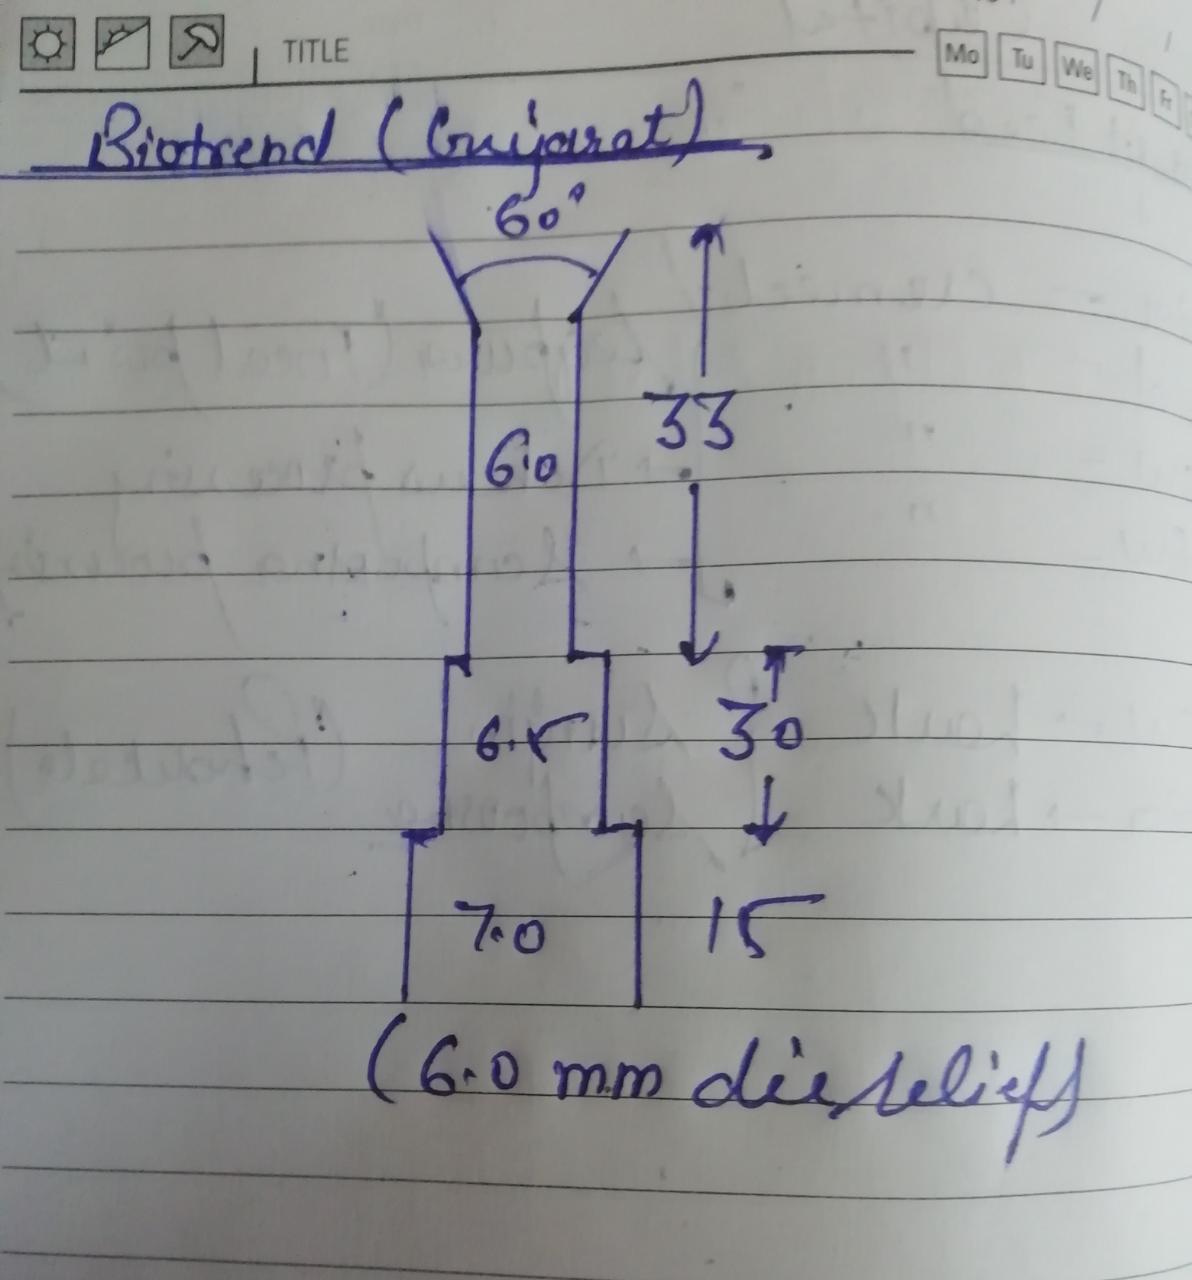 TITLE
Mo Tu We Th Fr
Biotrend (Gujarat)
60°
33
6.0
30
6.5
7.0
15
(6.0 mm die reliefs